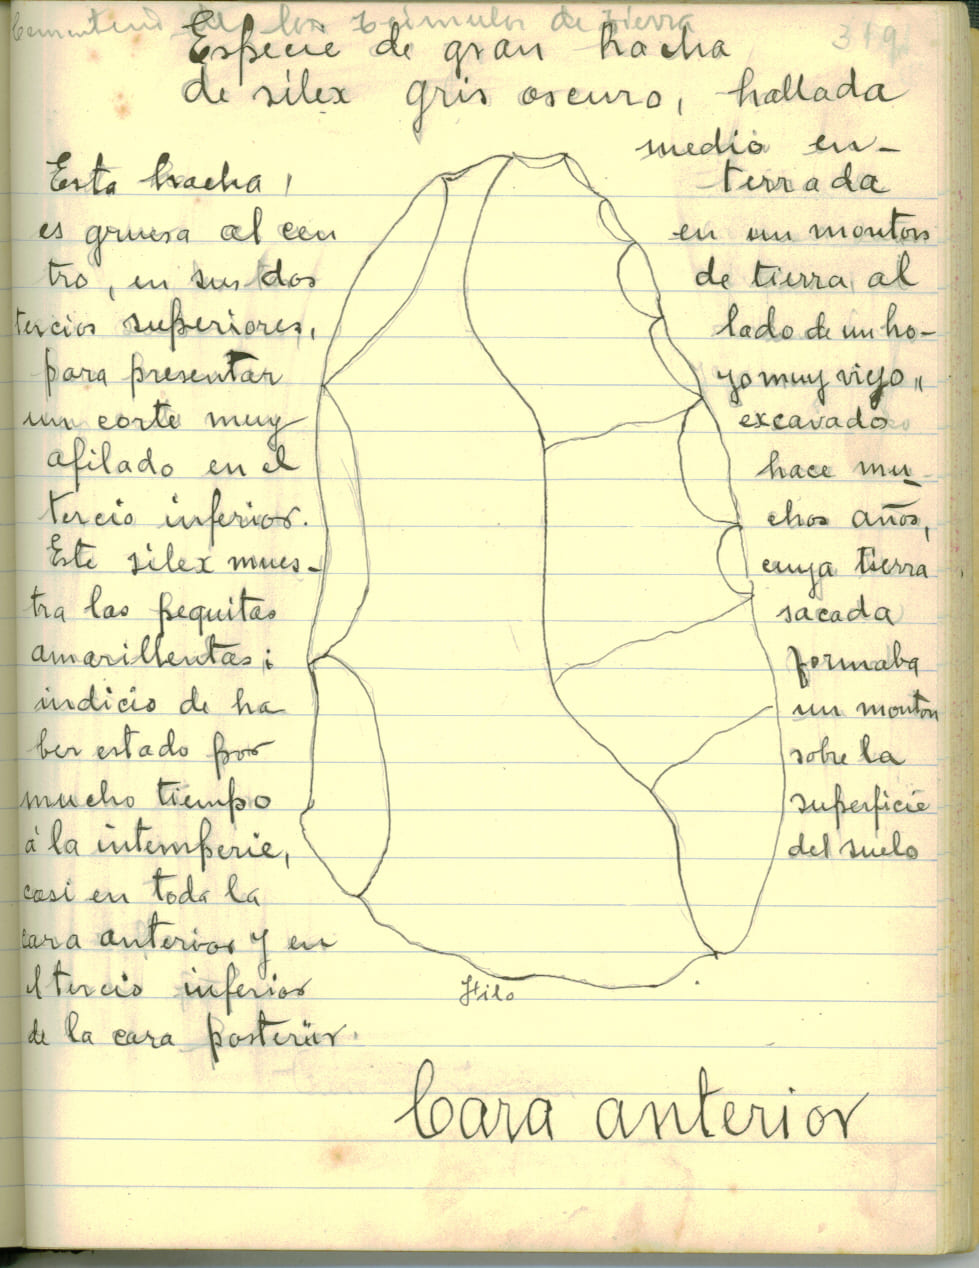 Cementerio de los túmulos de tierra 319
Especie de gran hacha
de sílex gris oscuro, hallada
medio en-
terrada
en un monton
de tierra, al
lado de un ho-
yo muy viejo,,
excavado
hace mu-
chos años,
cuya tierra
sacada
formaba
un monton
sobre la
superficie
del suelo
Esta hacha,
es gruesa al cen
tro, en sus dos
tercios superiores,
para presentar
un corte muy
afilado en el
tercio inferior.
Este silex mues-
tra las pequitas
amarillentas;
indicio de ha
ber estado por
mucho tiempo
á la intemperie,
casi en toda la
cara anterior y en
el tercio inferior
de la cara posterior.
Filo
Cara anterior